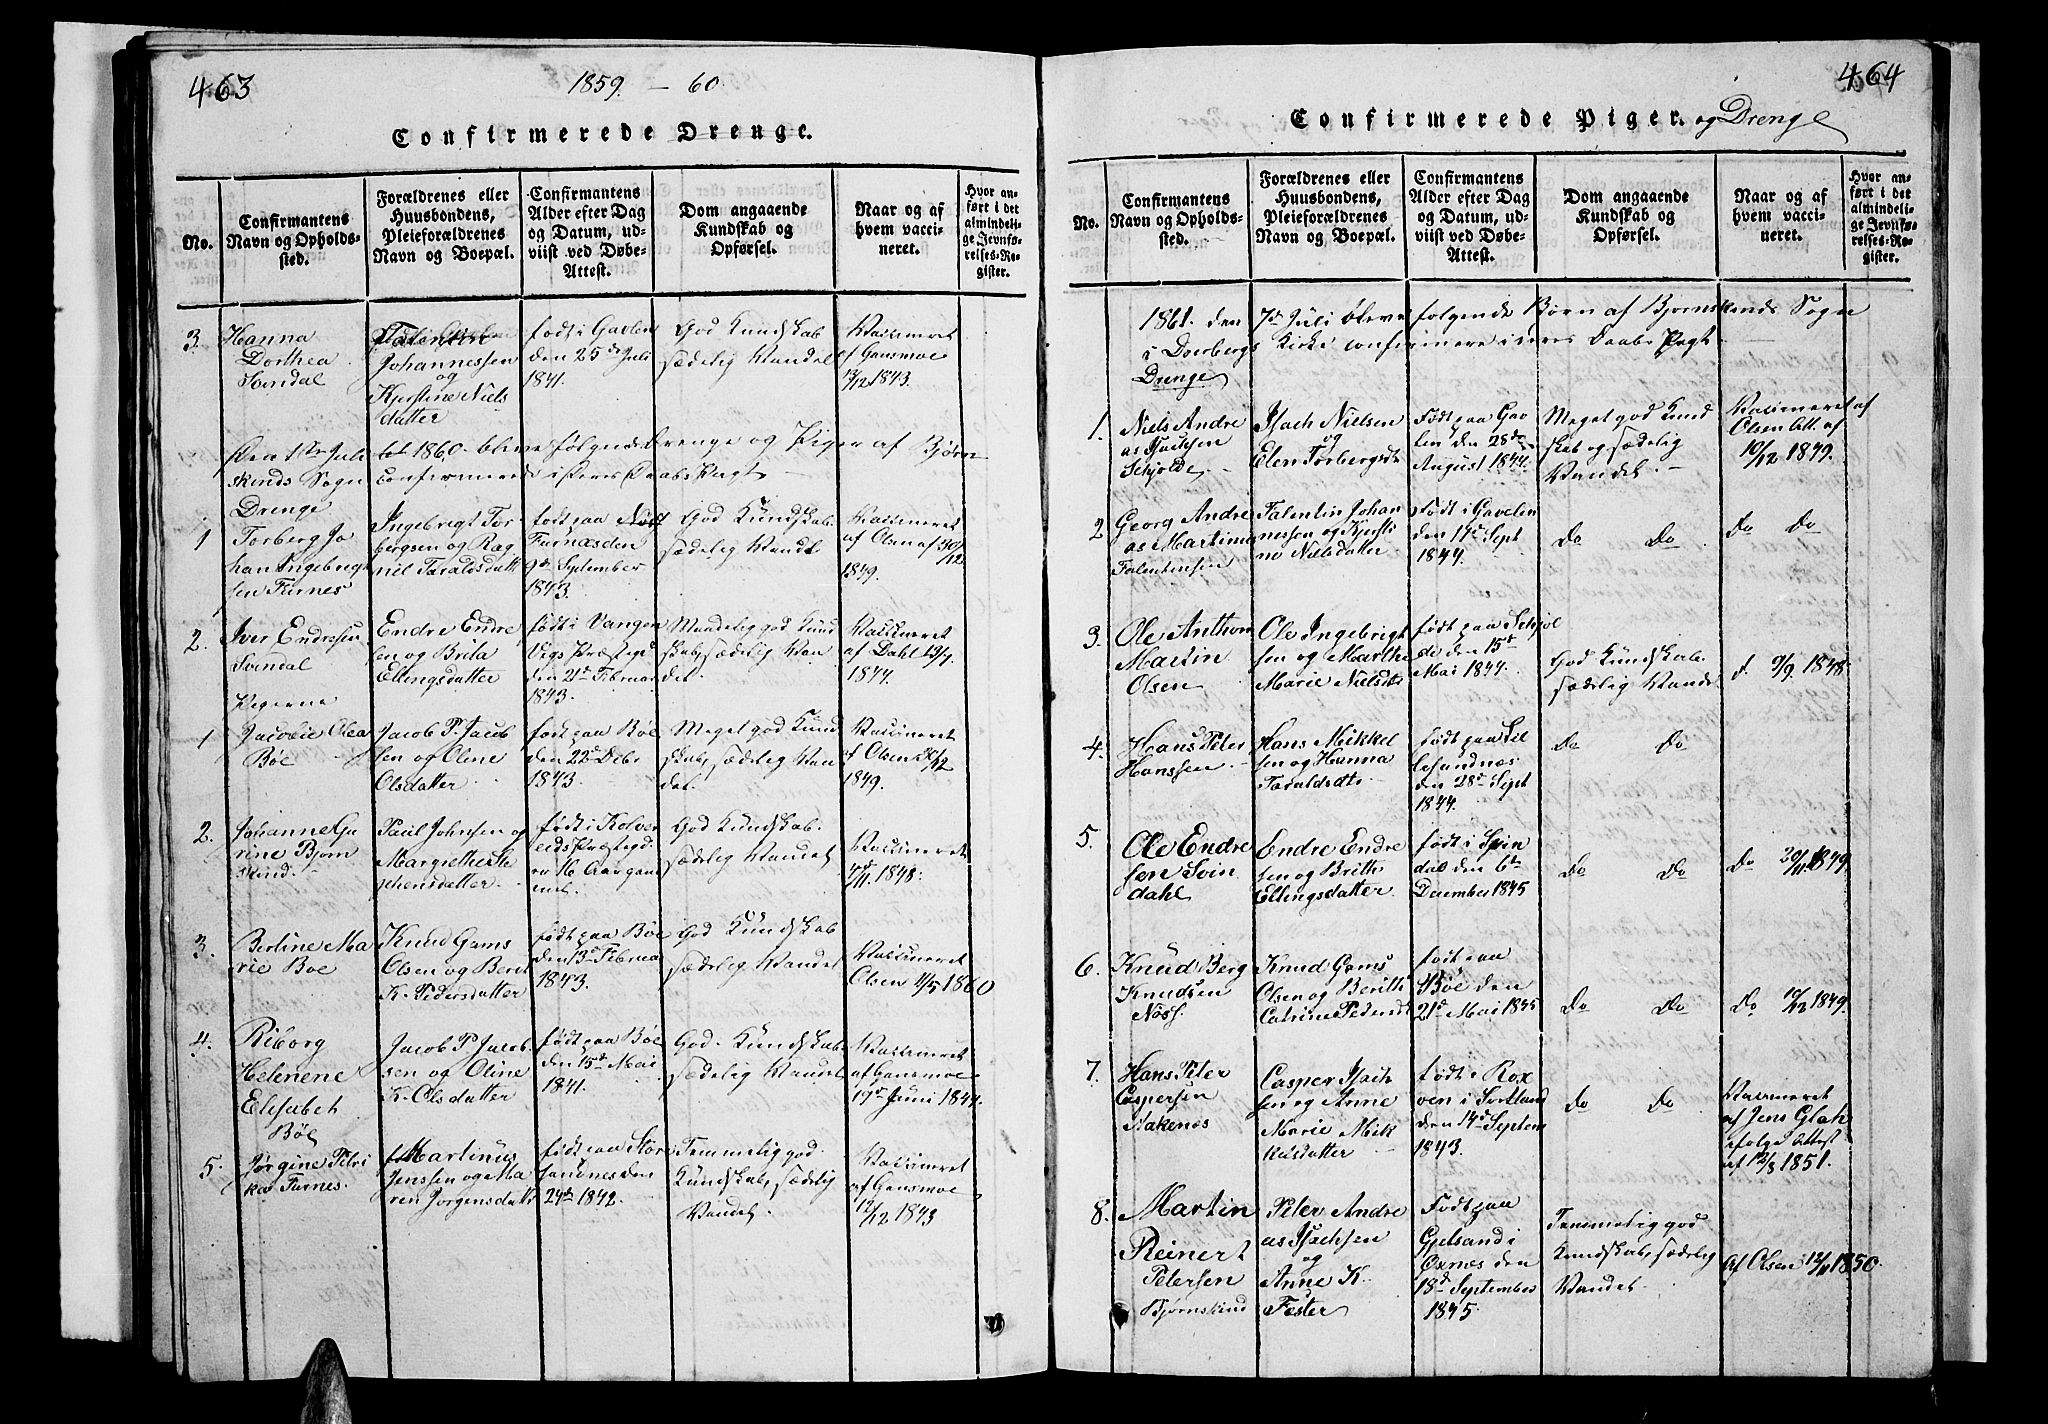 463
1859. – 60.
Confirmerede Drenge.
No.
Confirmantens Navn og Opholds-sted.
Forældrenes eller Huusbondens, Pleieforældrenes Navn og Boepæl.
Confirmantens Alder efter Dag og Datum, ud-viist ved Døbe-Attest.
Dom angaaende Kundskab og Opførsel.
Naar og af hvem vacci-neret.
Hvor an-ført i det almindeli-ge Jevnfø-relses-Re-gister.
3
Hanna
Dorthea
Svindal
Johannessen
og
Kjerstine Niels
datter
født i Gavlen
den 25de Juli
1841.
God Kundskab
sædelig Vandel
Vaccineret
af Gansmoe
13/12 1843.
Den 1ste Juli 1860 bleve følgende Drenge og Piger af Bjørn
skinds Sogn confirmerede i deres Daabs Pagt
Drenge
1
Torberg Jo
han Ingebrigt
sen Furnes
Ingebrigt Tor
bergsen og Rag
nil Taraldsdatt
født paa
Furnæs den
9de September
1843.
God Kundskab.
sædelig Vandel
Vaccineret
af Olsen af 30/12
1849.
2.
Iver Endresen
Svindal
Endre Endre
sen og Brita
Ellingsdatter
født i Vangen
Vigs Præstegj
den 21de Februar
1843.
Maadelig god Kund
skab, sædelig Van
del.
Vaccineret
af Dahl 19/7
1844.
Pigerne
1
Jacobie Olea
Bøe
Jacob P. Jacob
sen og Oline
Olsdatter
født paa Bøe
den 22de Debr
1843.
Meget god Kund
skab, sædelig Van
del.
Vaccineret
af Olsen 30/12
1849.
2.
Johanne Gu
rine Bjørn
skind.
Paul Johnsen og
Margrethe Ste
phensdatter
født i Kolver
eids Præstegd
16 Aar gam
mel.
God Kundskab.
sædelig Vandel
Vaccineret
7/11. 1848.
3.
Berline Ma
rie Bøe
Knud Gams
Olsen og Berit
K. Pedersdatter
født paa Bøe
den 13de Februa
1843.
God Kundskab
sædelig Vandel
Vaccineret
Olsen 11/5 1860
4.
Riborg
Helenene
Elisabet
Bøe
Jacob P. Jacob
sen og Oline
K. Olsdatter
født paa Bøe
den 15de Mai
1841.
God Kundskab
sædelig Vandel
Vaccineret
af Gansmoe
19de Juni 1844.
5.
Jørgine Petri
ka Furnes.
Martinus
Jenssen og Ma
ren Jørgensdatt
født paa Stor
sandnes den
24de 1842.
Temmelig god
Kundskab, sædelig
Vandel.
Vaccineret
af Gansmoe
12/12 1843
464
Confirmerede Piger. og Drenge
No.
Confirmantens Navn og Opholds-sted.
Forældrenes eller Huusbondens, Pleieforældrenes Navn og Boepæl.
Confirmantens Alder efter Dag og Datum, ud-viist ved Døbe-Attest.
Dom angaaende Kundskab og Opførsel.
Naar og af hvem vacci-neret.
Hvor an-ført i det almindeli-ge Jevnfø-relses-Re-gister.
1861. den 7de Juli bleve følgende Børn af Bjørnskinds Sogn
i Dverbergs Kirke confirmere i deres Daabs Pagt.
Drenge
1.
Niels Andre
as Isachsen
Schjolde
Isach Nielsen
og
Elen Torbergsdt
Født paa Gav
len den 28de
August 1844.
Meget god Kund
skab og sædelig
Vandel.
Vaccineret af
Olsen
10/12 1849.
2
Georg Andre
as Martinus
Falentinsen
Falentin Johan
nessen og Kjersti
ne Nielsdatter
Født i Gavelen
den 17de Sept
1844.
Do Do
Do Do
3.
Ole Anthon
Martin
Olsen
Ole Ingebrigt
sen og Marthe
Marie Nielsdt
født paa Schjol
de den 15de
Mai 1844.
God Kundskab.
sædelig Vandel
d. 9/9. 1848.
4.
Hans Peter
Hanssen
Hans Mikkel
sen og Hanna
Taraldsdt
født paa Lil
lesandnæs
den 28de Sept
1844.
Do Do
5.
Ole Endre
sen Svin
dahl
Endre Endre
sen og Brith
Ellingsdatter
født i Svin
dal den 6te
December 1845
Do Do
Do 20/11 1849
6.
Knud Berg
Knudsen
Nøss.
Knud Gams
Olsen og Berith
Catrine Pedersdt
født paa
Bøe den
21de Mai 1845
Do Do
Do 10/12 1849.
7.
Hans Peter
Caspersen
Aakenæs
Casper Isach
sen og Anne
Marie Mik
kelsdatter
født i Rox
øen i Sortland
den 14de Septem
1843.
Do Do
Vaccineret
af Jens Glah
ifølge Attest
af 12/8 1851.
8.
Martin
Reinert
Petersen
Bjørnskind
Peter Andre
as Isachsen
og
Anne K.
Fester
Født paa
Gjelsand i
Øxnes den
18de September
1845
Temmelig god
Kundskab, sædelig
Vandel.
af Olsen 12/11 1850.